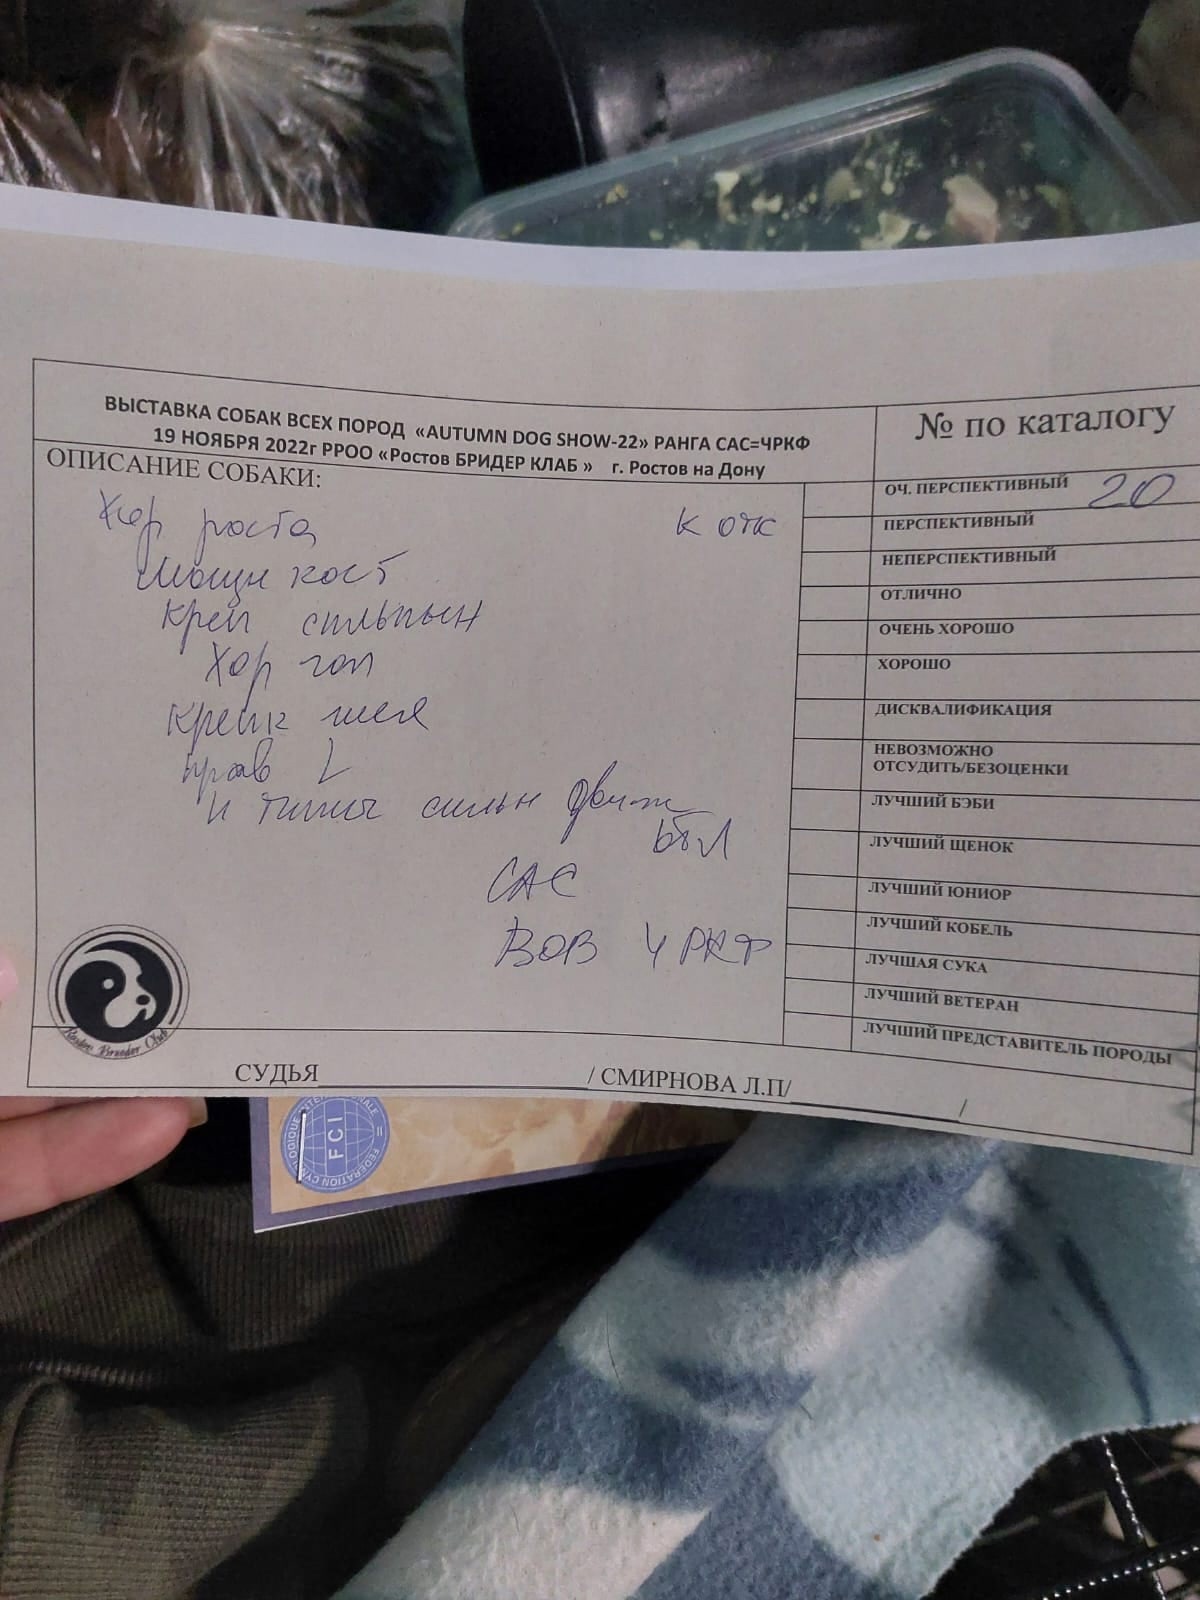 ВЫСТАВКА СОБАК ВСЕХ ПОРОД «AUTUMN DOG SHOW-22» РАНГА САС=ЧРКФ
19 НОЯБРЯ 2022г РРОО «Ростов БРИДЕР КЛАБ » г. Ростов на Дону
№ по каталогу
20
ОПИСАНИЕ СОБАКИ:
Хор роста
к отк
Мощн кост
Креп
Хор гол
Крепк шея
прав L
и типич сильн движ
отл
САС
BOB ЧРКФ
ОЧ. ПЕРСПЕКТИВНЫЙ
ПЕРСПЕКТИВНЫЙ
НЕПЕРСПЕКТИВНЫЙ
ОТЛИЧНО
ОЧЕНЬ ХОРОШО
ХОРОШО
ДИСКВАЛИФИКАЦИЯ
НЕВОЗМОЖНО
ОТСУДИТЬ/БЕЗОЦЕНКИ
ЛУЧШИЙ БЭБИ
ЛУЧШИЙ ЩЕНОК
ЛУЧШИЙ ЮНИОР
ЛУЧШИЙ КОБЕЛЬ
ЛУЧШАЯ СУКА
ЛУЧШИЙ ВЕТЕРАН
ЛУЧШИЙ ПРЕДСТАВИТЕЛЬ ПОРОДЫ
Rostov Breeder Club
СУДЬЯ____________________/ СМИРНОВА Л.П/____________/
FCI